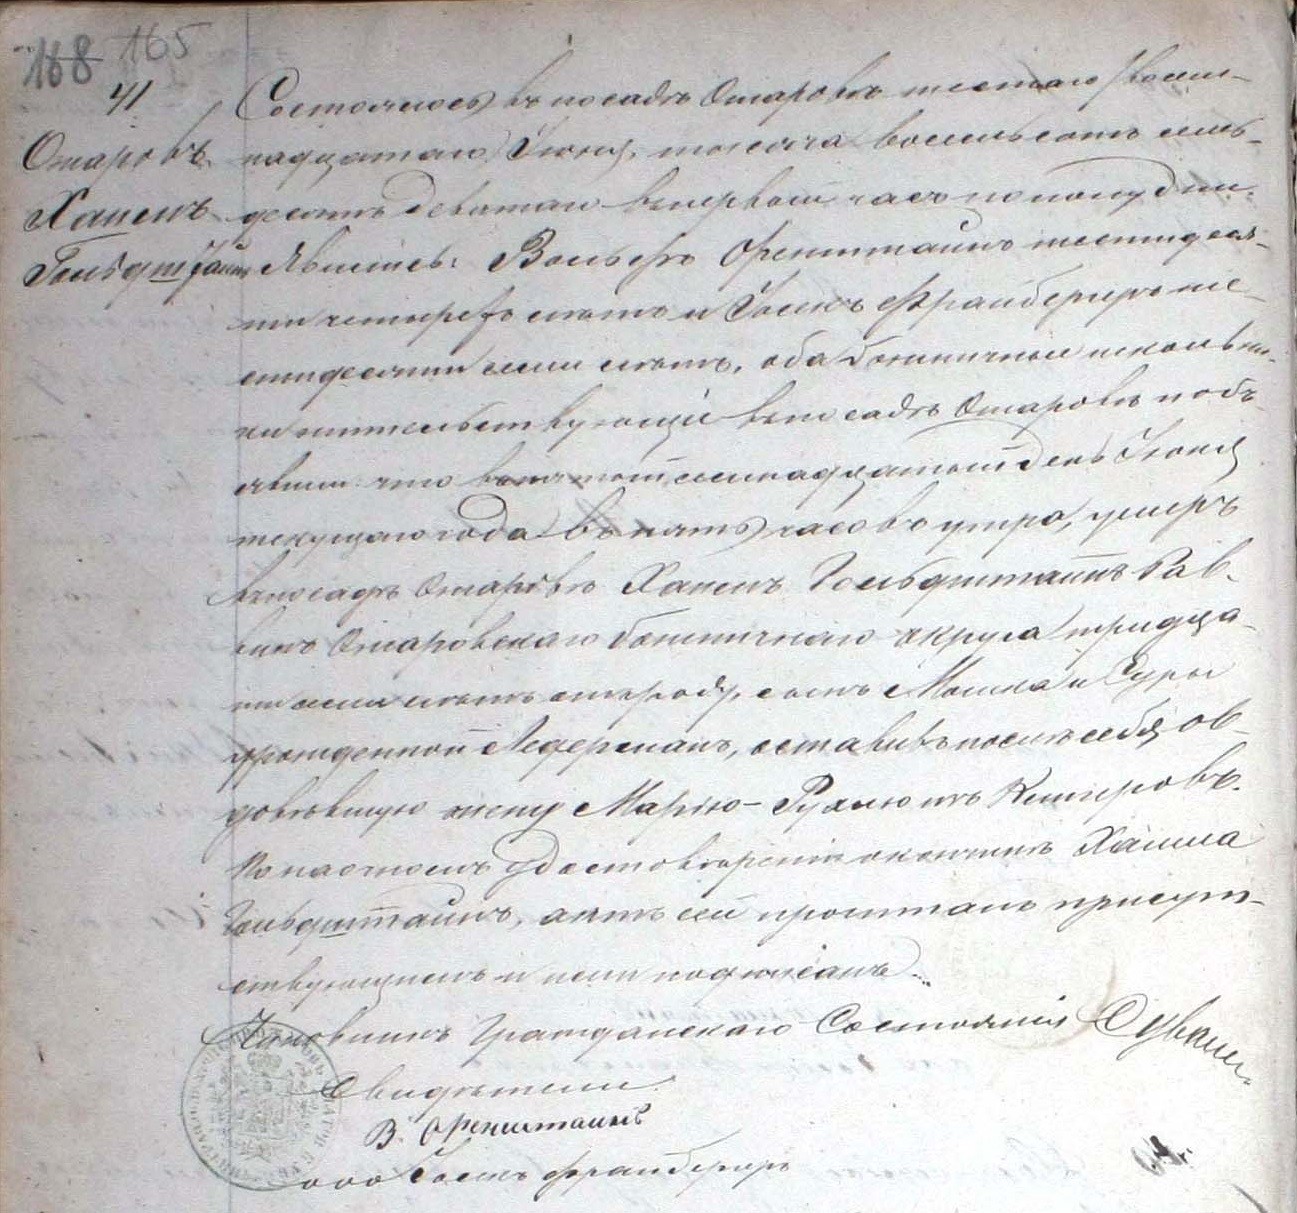 168 165
41
Ожаровъ
Хаимъ
Гольдштайнъ
Состоялось въ посадѣ Ожаровѣ шестаго /восем-
надцатаго/ Іюня, тысяча восемьсотъ семь-
десятъ девятаго въ первый часъ по полудни.
Явились: Вольфъ Оренштайнъ шестидеся-
ти четырехъ лѣтъ и Іоскъ Фрайбергеръ ше-
стидесяти семи лѣтъ, оба божничные школьни-
ки жительствующіе въ посадѣ Ожаровѣ и объ-
явили что въ пятый /семнадцатый/ день Іюня
текущаго года въ пять часовъ утра, умеръ
въ посадѣ Ожаровѣ Хаимъ Гольдштайнъ Рав-
винъ Ожаровскаго божничнаго округа тридца-
ти семи лѣтъ отъ роду, сынъ Мошка и Суры
урожденной Ледерманъ, оставивъ послѣ себя ов-
довѣвшую жену Марію-Рухлю изъ Кешеровъ.
По настоящемъ удостовѣреніи о кончинѣ Хаима
Гольдштайнъ, актъ сей прочитанъ присут-
ствующимъ и ими подписанъ.
Чиновникъ Гражданскаго Состоянія
Свидѣтели
В. Оренштайнъ
ооо Іоскъ Фрайбергеръ